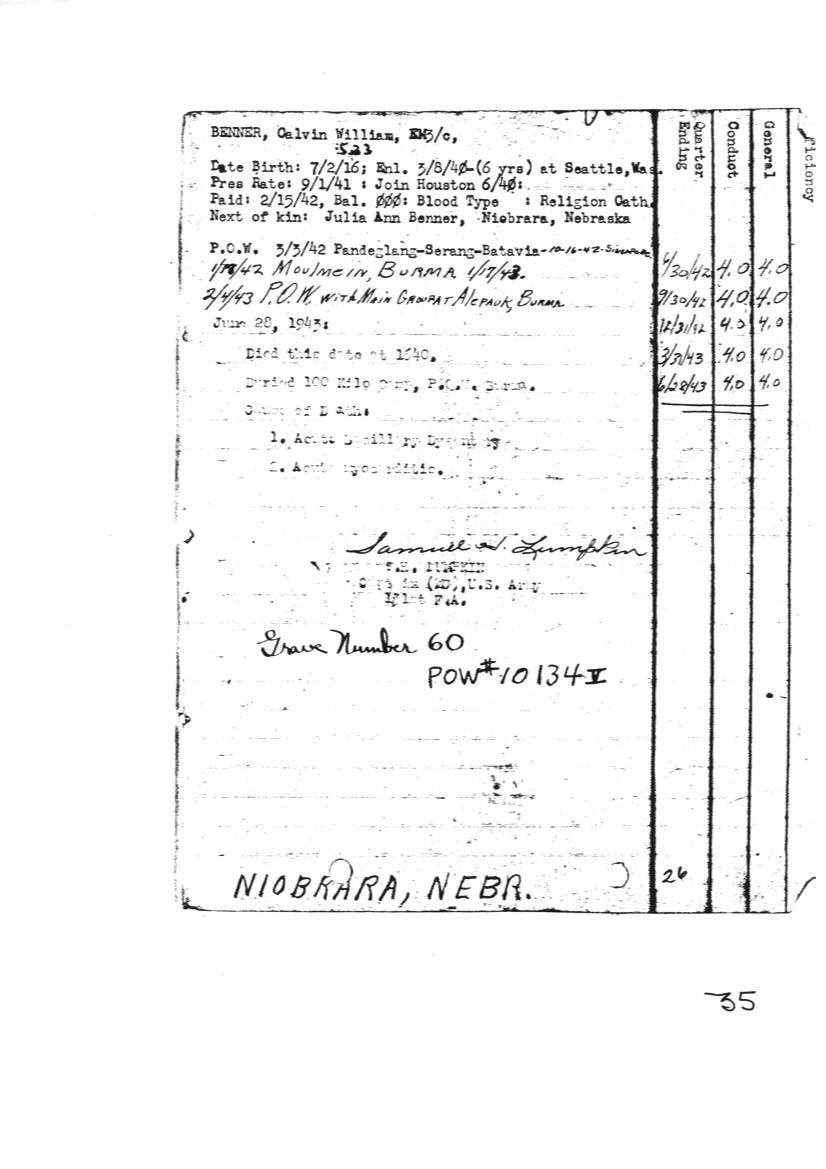 BENNER, Calvin William, EM3/c,
523
Date Birth: 7/2/16; Enl. 3/8/40-(6 yrs) at Seattle,Was.
Pres Rate: 9/1/41 : Join Houston 6/40:
Paid: 2/15/42, Bal. 000: Blood Type : Religion Cath.
Next of kin: Julia Ann Benner, Niobrara, Nebraska
P.O.W. 3/3/42 Pandeglang-Serang-Batavia-10-16-42-
MOULMEIN, BURMA 1/17/43.
2/4/43 P.O.W. WITH MAIN GROUP AT ALEPAUK, BURMA
June 28, 1943:
Died this date at 1640.
Buried 100 Kilo Camp, P.O.W. Burma.
Cause of Death:
1. Acute Bacillary Dysentery
2. Acute
Samuel H. Lumpkin
S.H. LUMPKIN
Captain (MD),U.S. Army
131st F.A.
Grave Number 60
POW# 10134 V
NIOBRARA, NEBR.
Quarter Ending Conduct General
ficiency
6/30/42 4.0 4.0
9/30/42 4.0 4.0
12/31/42 4.0 4.0
3/31/43 4.0 4.0
6/28/43 4.0 4.0
26
35